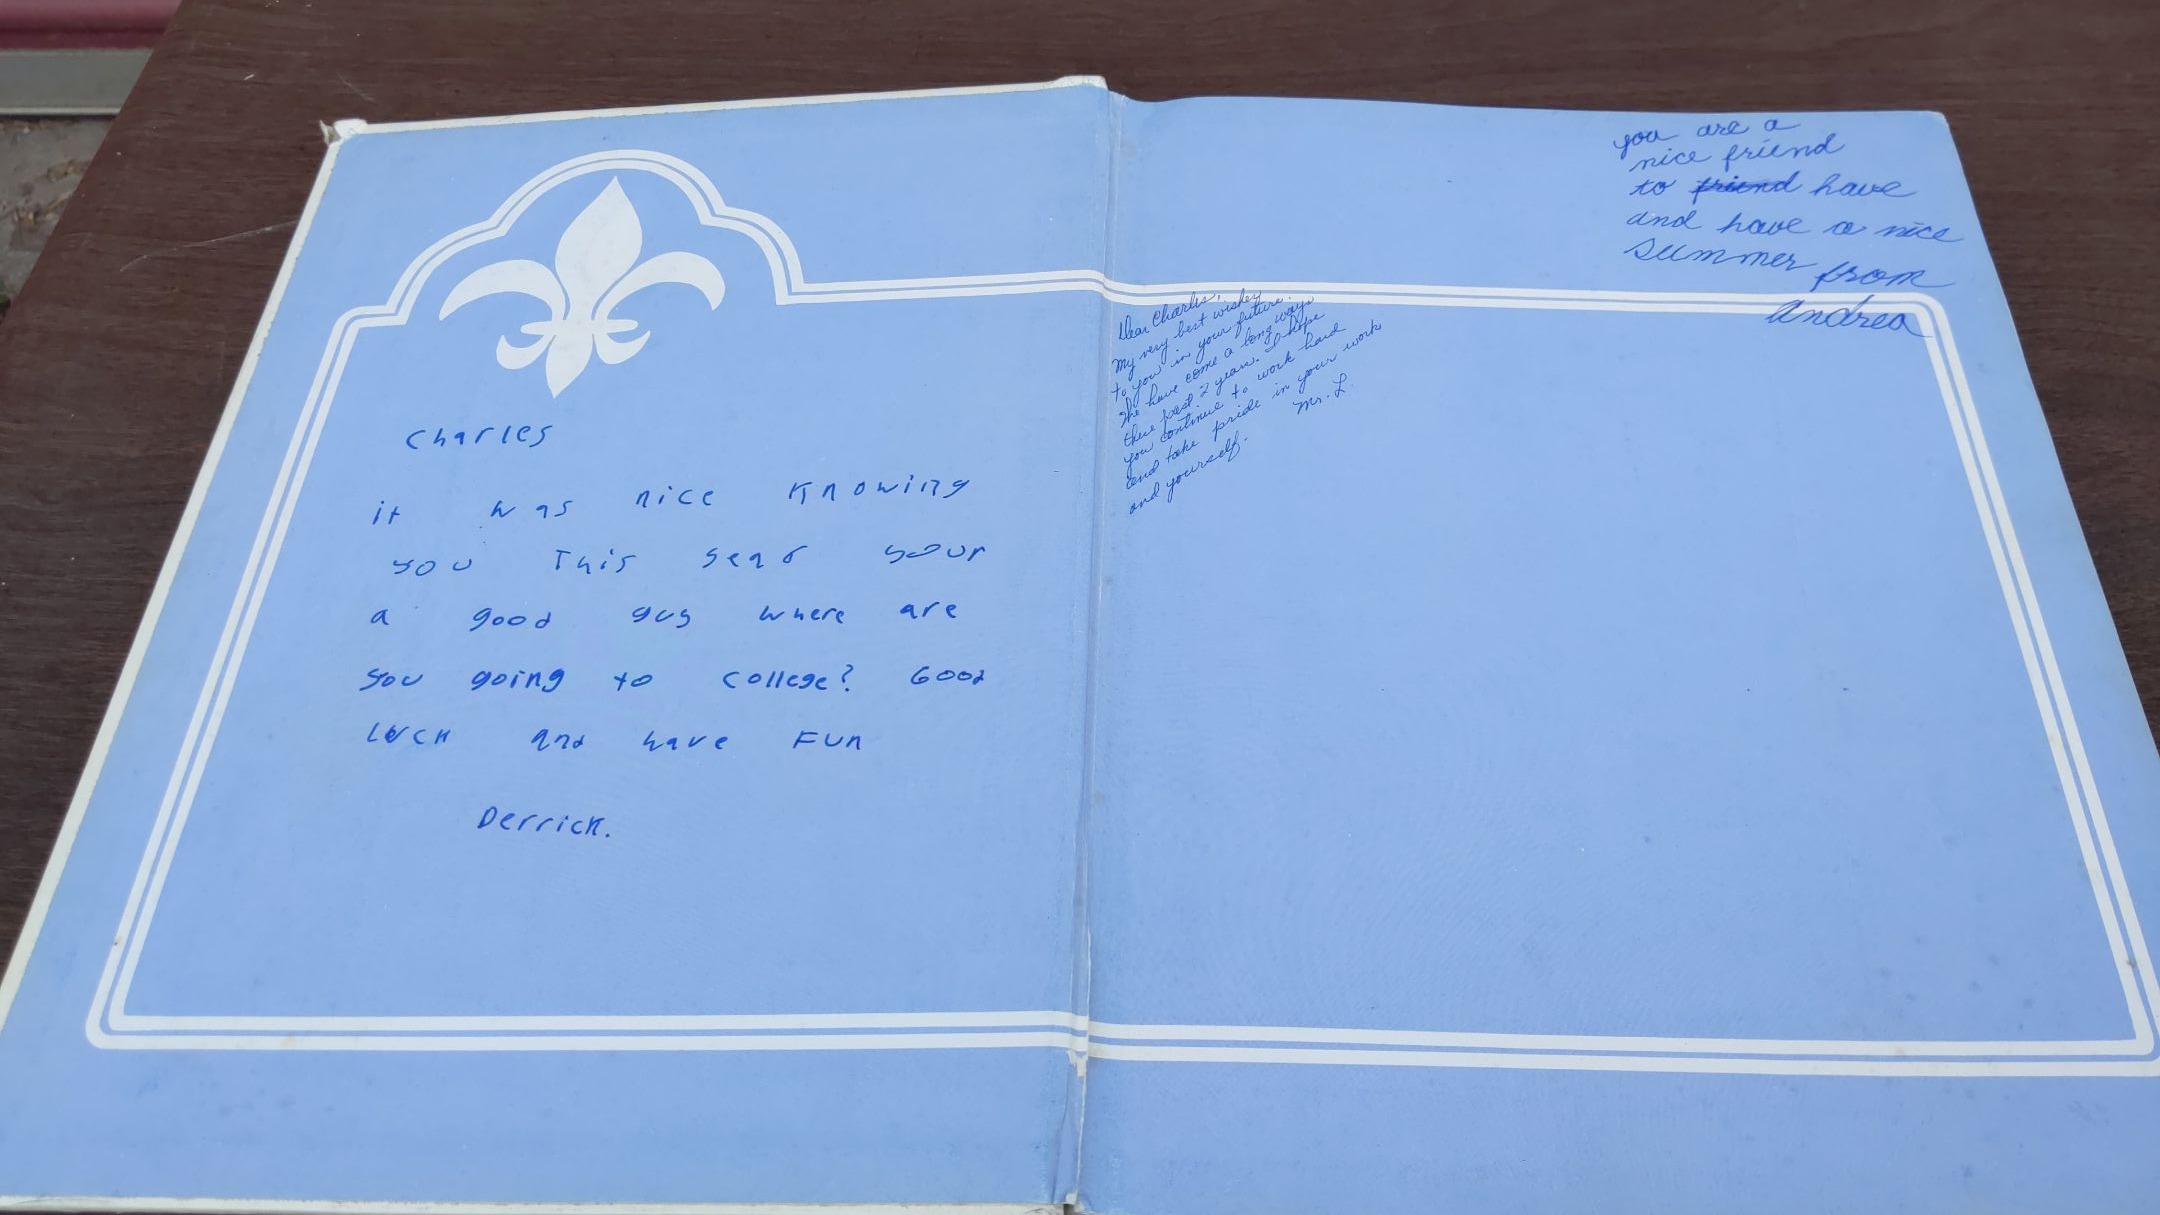 Charles
it was nice Knowing
you This year your
a good guy where are
you going to college? Good
luck and have Fun
Derrick.
Dear Charles,
My very best wishes
to you in your future.
We have come a long ways
these past 2 years. I hope
you continue to work hard
and take pride in your work
and yourself.
Mr. L.
you are a
nice friend
to friend have
and have a nice
summer from
Andrea